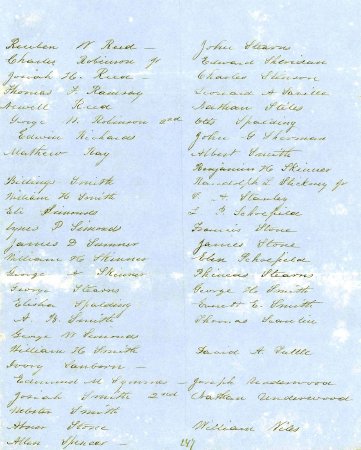 Reuben W Reed -
Charles Robinson Jr
Josiah H. Reed -
Thomas F. Ramsay
Newell Reed
George W. Robinson 2nd
Edwin Richards
Mathew Ray
Billings Smith
William H. Smith
Eli Simonds
Cyrus P Simonds
James D Sumner
William H. Skinner
George Skinner
George Stearns
Elisha Spalding
A. B. Smith
George W Simonds
William H. Smith
Ivory Sanborn -
Edmund M. Symmes -
Josiah Smith 2nd
Webster Smith
Abner Stone
Allen Spencer -
John Stearns
Edward Sheridan
Charles Stinson
Leonard A Saville
Nathan Stiles
Otis Spalding
John G Sherman
Albert Smith
Benjamin H. Skinner
Randolph L Stickney Jr
Stanley
Schofield
Francis Stone
James Stone
Eben Schofield
Phineas Stearns
George H. Smith
Everett E. Smith
Thomas
David A. Tuttle
Joseph Underwood
Underwood
William Viles
147